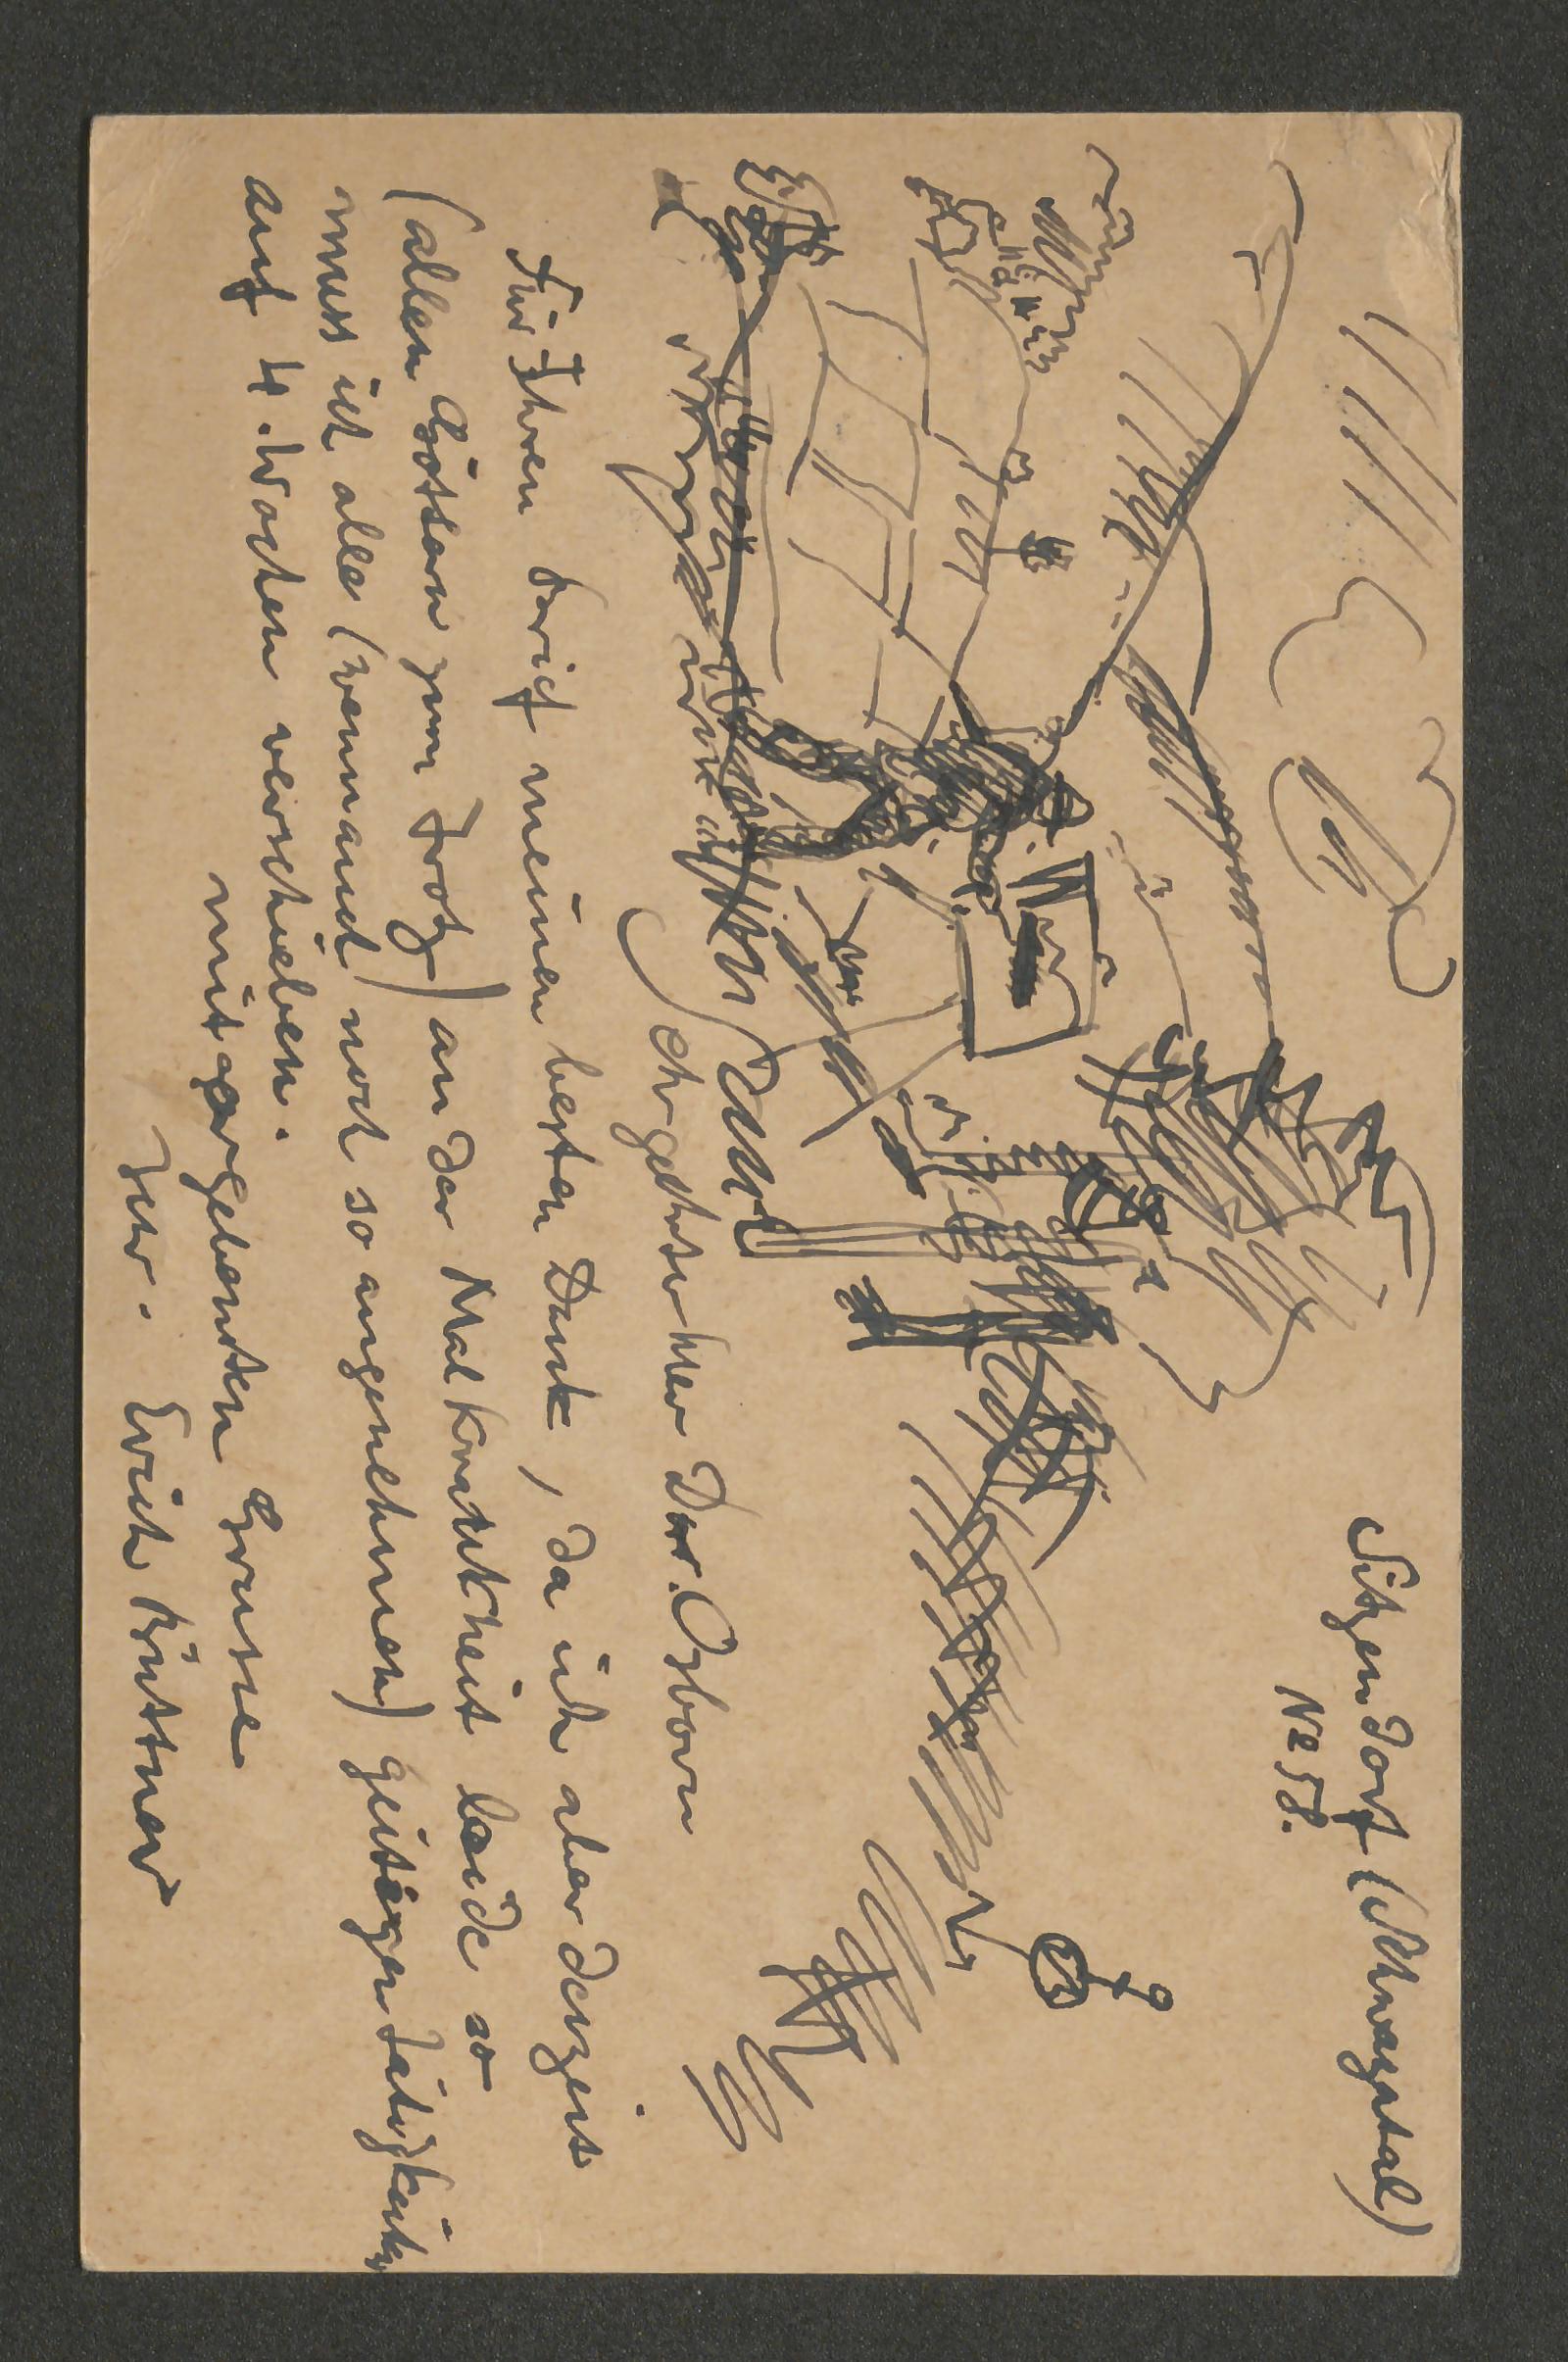 Sitzendorf (Schwarzatal)
No 58.
Sehr geehrter Herr Dor. Osborn
Für Ihren Brief meinen besten Dank, da ich aber derzeit
(allen Göttern zum Trotz) an der Malkrankheit leide so
muss ich alle (wenn auch noch so angenehmen) geistigen Tätigkeiten
auf 4 Wochen verschieben.
mit ergebensten Grüsse
Ihr. Erich Büttner